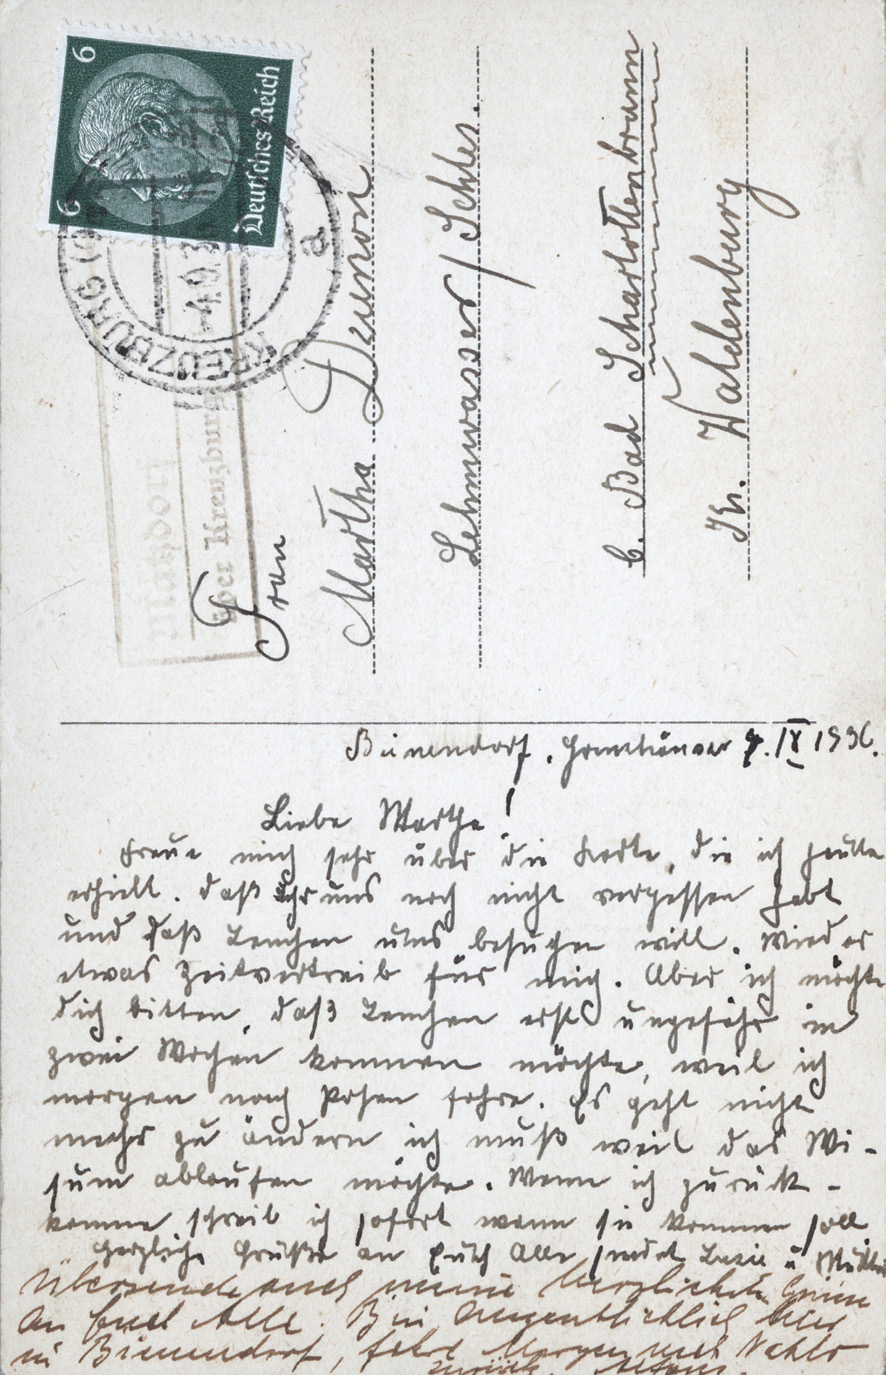 6
6
Deutsches Reich
KREUZBURG
a
Matzdorf
über Kreuzburg
Frau
Martha
Lehmwasser/Schles.
b. Bad Scharlottenbrunn
Kr. Waldenburg
IX 1936.
Liebe Marthe!
Freue mich sehr über die Karte, die ich heute
erhielt. Daß Ihr uns noch nicht vergessen habt
und daß Lenchen uns besuchen will. Wieder
etwas Zeitvertreib für mich. Aber ich möchte
dich bitten, daß Lenchen erst ungefähr in
zwei Wochen kommen möchte, weil ich
morgen nach Posen fahre. Es geht nicht
mehr zu ändern ich muß weil das Wi-
sum ablaufen möchte. Wenn ich zurück-
komme schreib ich sofort wann sie kommen soll
Herzliche Grüße an Euch Alle sendet Luzie u Mutter
Übersende auch meine herzlichsten Grüsse
an Euch Alle. Bin augenblicklich hier
in, fahre Morgen nach
zurück. Alfons.